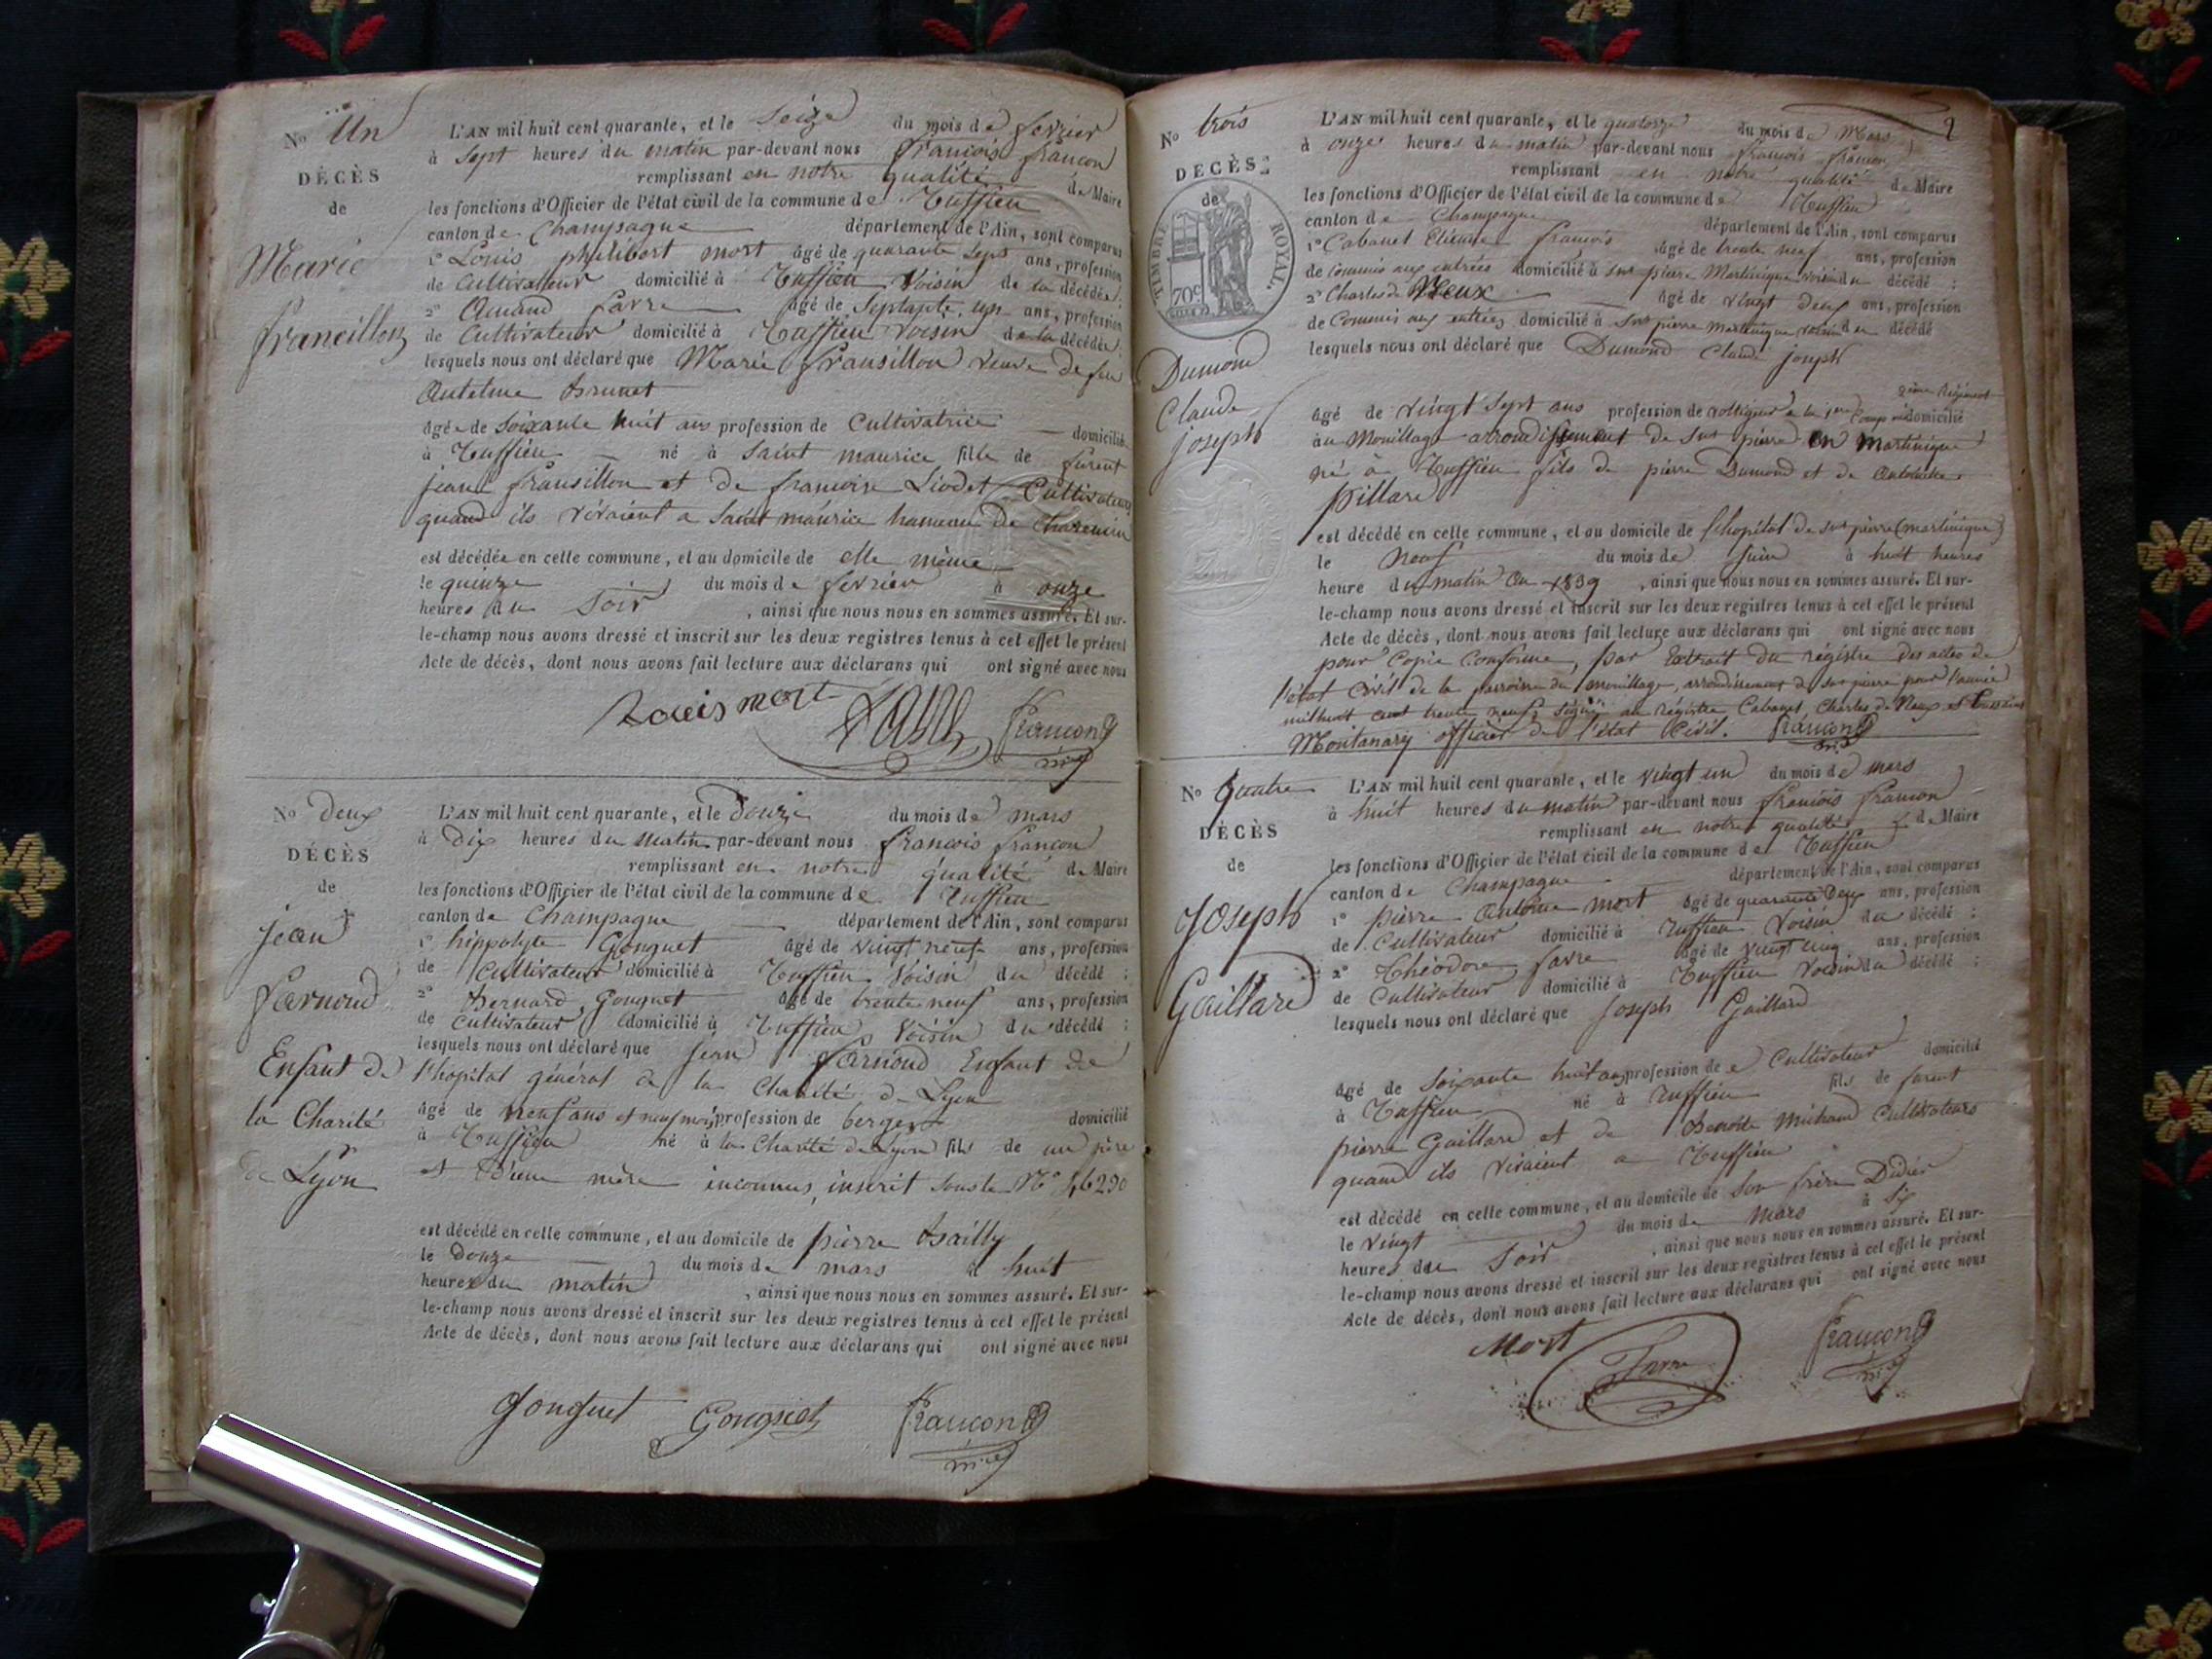 No Un
DÉCÈS
de
Marie
francillon
L'AN mil huit cent quarante, et le seize du mois de fevrier
à sept heures du matin par-devant nous francois francon
remplissant en notre qualité de Maire
les fonctions d'Officier de l'état civil de la commune de Ruffieu
canton de Champagne département de l'Ain, sont comparus
1° Louis philibert mort âgé de quarante sept ans, profession
de Cultivateur domicilié à Ruffieu Voisin de la décédée;
2° Amand favre âgé de Septante un ans, profession
de Cultivateur domicilié à Ruffieu Voisin de la décédée;
lesquels nous ont déclaré que Marie fransillon veuve de feu
Antelme Brunet
âgée de soixante huit ans profession de Cultivatrice domicilié
à Ruffieu né à Saint maurice fille de furent
jean fransillon et de francoise Liodet Cultivateurs
quand ils vivaient a Saint maurice hameau de Charencin
est décédée en cette commune, et au domicile de elle même
le quinze du mois de fevrier à onze
heures du Soir , ainsi que nous nous en sommes assuré. Et sur-
le-champ nous avons dressé et inscrit sur les deux registres tenus à cet effet le présent
Acte de décès, dont nous avons fait lecture aux déclarans qui ont signé avec nous
Louis mort favre francon
No Deux
DÉCÈS
de
jean
farnoud
Enfant de
la Charité
de Lyon
L'AN mil huit cent quarante, et le Douze du mois de mars
à Dix heures du matin par-devant nous francois francon
remplissant en notre qualité de Maire
les fonctions d'Officier de l'état civil de la commune de Ruffieu
canton de Champagne département de l'Ain, sont comparus
1° hippolyte Gonguet âgé de vingt neuf ans, profession
de Cultivateur domicilié à Ruffieu Voisin du décédé;
2° Bernard Gonguet âgé de trente neuf ans, profession
de Cultivateur domicilié à Ruffieu Voisin du décédé;
lesquels nous ont déclaré que jean farnoud Enfant de
l'hopital général de la Charité de Lyon
âgé de neuf ans et neuf mois profession de berger domicilié
à Ruffieu né à la Charité de Lyon fils de un père
et d'une mère inconnus, inscrit sous le N° 46290
est décédé en cette commune, et au domicile de pierre Bailly
le Douze du mois de mars à huit
heures du matin , ainsi que nous nous en sommes assuré. Et sur-
le-champ nous avons dressé et inscrit sur les deux registres tenus à cet effet le présent
Acte de décès, dont nous avons fait lecture aux déclarans qui ont signé avec nous
Gonguet Gonguet francon
2
No trois
DÉCÈS
de
TIMBRE ROYAL.
70c
Dumond
Claude
joseph
L'AN mil huit cent quarante, et le quatorze du mois de Mars
à onze heures du matin par-devant nous françois francon
remplissant en notre qualité de Maire
les fonctions d'Officier de l'état civil de la commune de Ruffieu
canton de Champagne département de l'Ain, sont comparus
1° Cabanet Etienne françois âgé de trente neuf ans, profession
de Commis aux entrées domicilié à Snt pierre Martinique voisin du décédé;
2° Charles de Neux âgé de vingt deux ans, profession
de Commis aux entrées domicilié à Snt pierre Martinique voisin du décédé
lesquels nous ont déclaré que Dumond Claude joseph
2ème Régiment
âgé de vingt sept ans profession de voltigeur à la 1ère Comp domicilié
au Mouillage arrondissement de Snt pierre en Martinique
né à Ruffieu fils de pierre Dumond et de Antoinette
pillard
est décédé en cette commune, et au domicile de l'hopital de Snt pierre (martinique)
le Neuf du mois de Juin à huit heures
heure du matin an 1839 , ainsi que nous nous en sommes assuré. Et sur-
le-champ nous avons dressé et inscrit sur les deux registres tenus à cet effet le présent
Acte de décès, dont nous avons fait lecture aux déclarans qui ont signé avec nous
pour Copie Conforme, par Extrait du régistre des actes de
l'état Civil de la parroisse du mouillage, arrondissement de Snt pierre pour l'année
mil huit cent trente neuf, signé au régistre Cabanet, Charles de Neux et
Montanary officier de l'état Civil. francon
No Quatre
DÉCÈS
de
Joseph
Gaillard
L'AN mil huit cent quarante, et le vingt un du mois de mars
à huit heures du matin par-devant nous francois francon
remplissant en notre qualité de Maire
les fonctions d'Officier de l'état civil de la commune de Ruffieu
canton de Champagne département de l'Ain, sont comparus
1° pierre Antoine mort âgé de quarante Deux ans, profession
de Cultivateur domicilié à Ruffieu Voisin du décédé;
2° Théodore favre âgé de vingt cinq ans, profession
de Cultivateur domicilié à Ruffieu Voisin du décédé;
lesquels nous ont déclaré que Joseph Gaillard
âgé de Soixante huit ans profession de Cultivateur domicilié
à Ruffieu né à Ruffieu fils de furent
pierre Gaillard et de Benoite Michaud Cultivateurs
quand ils vivaient a Ruffieu
est décédé en cette commune, et au domicile de son frère Didier
le vingt du mois de mars à six
heures du Soir , ainsi que nous nous en sommes assuré. Et sur-
le-champ nous avons dressé et inscrit sur les deux registres tenus à cet effet le présent
Acte de décès, dont nous avons fait lecture aux déclarans qui ont signé avec nous
Mort Favre francon